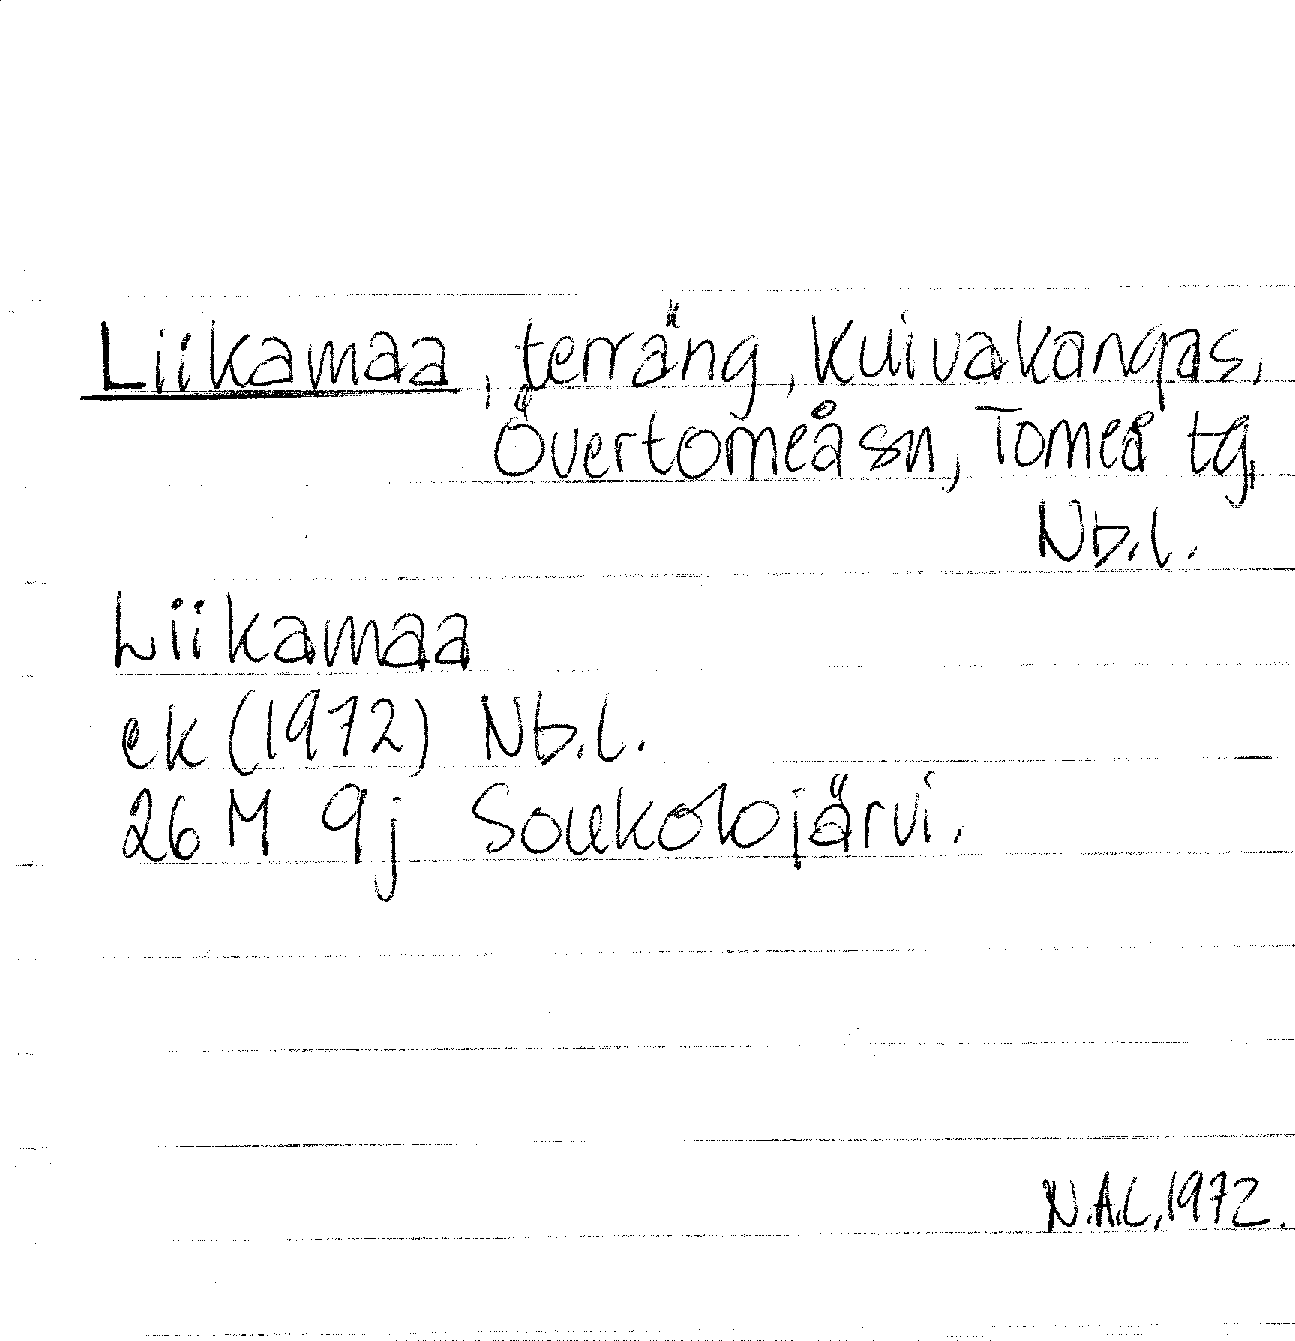 Liikamaa, terräng, Kuivakangas,
Övertorneå sn, Torneå tg,
Nb.l.
Liikamaa
ek (1972) Nb.l.
26 M 9j Soukolojärvi.
N.A.L. 1972.